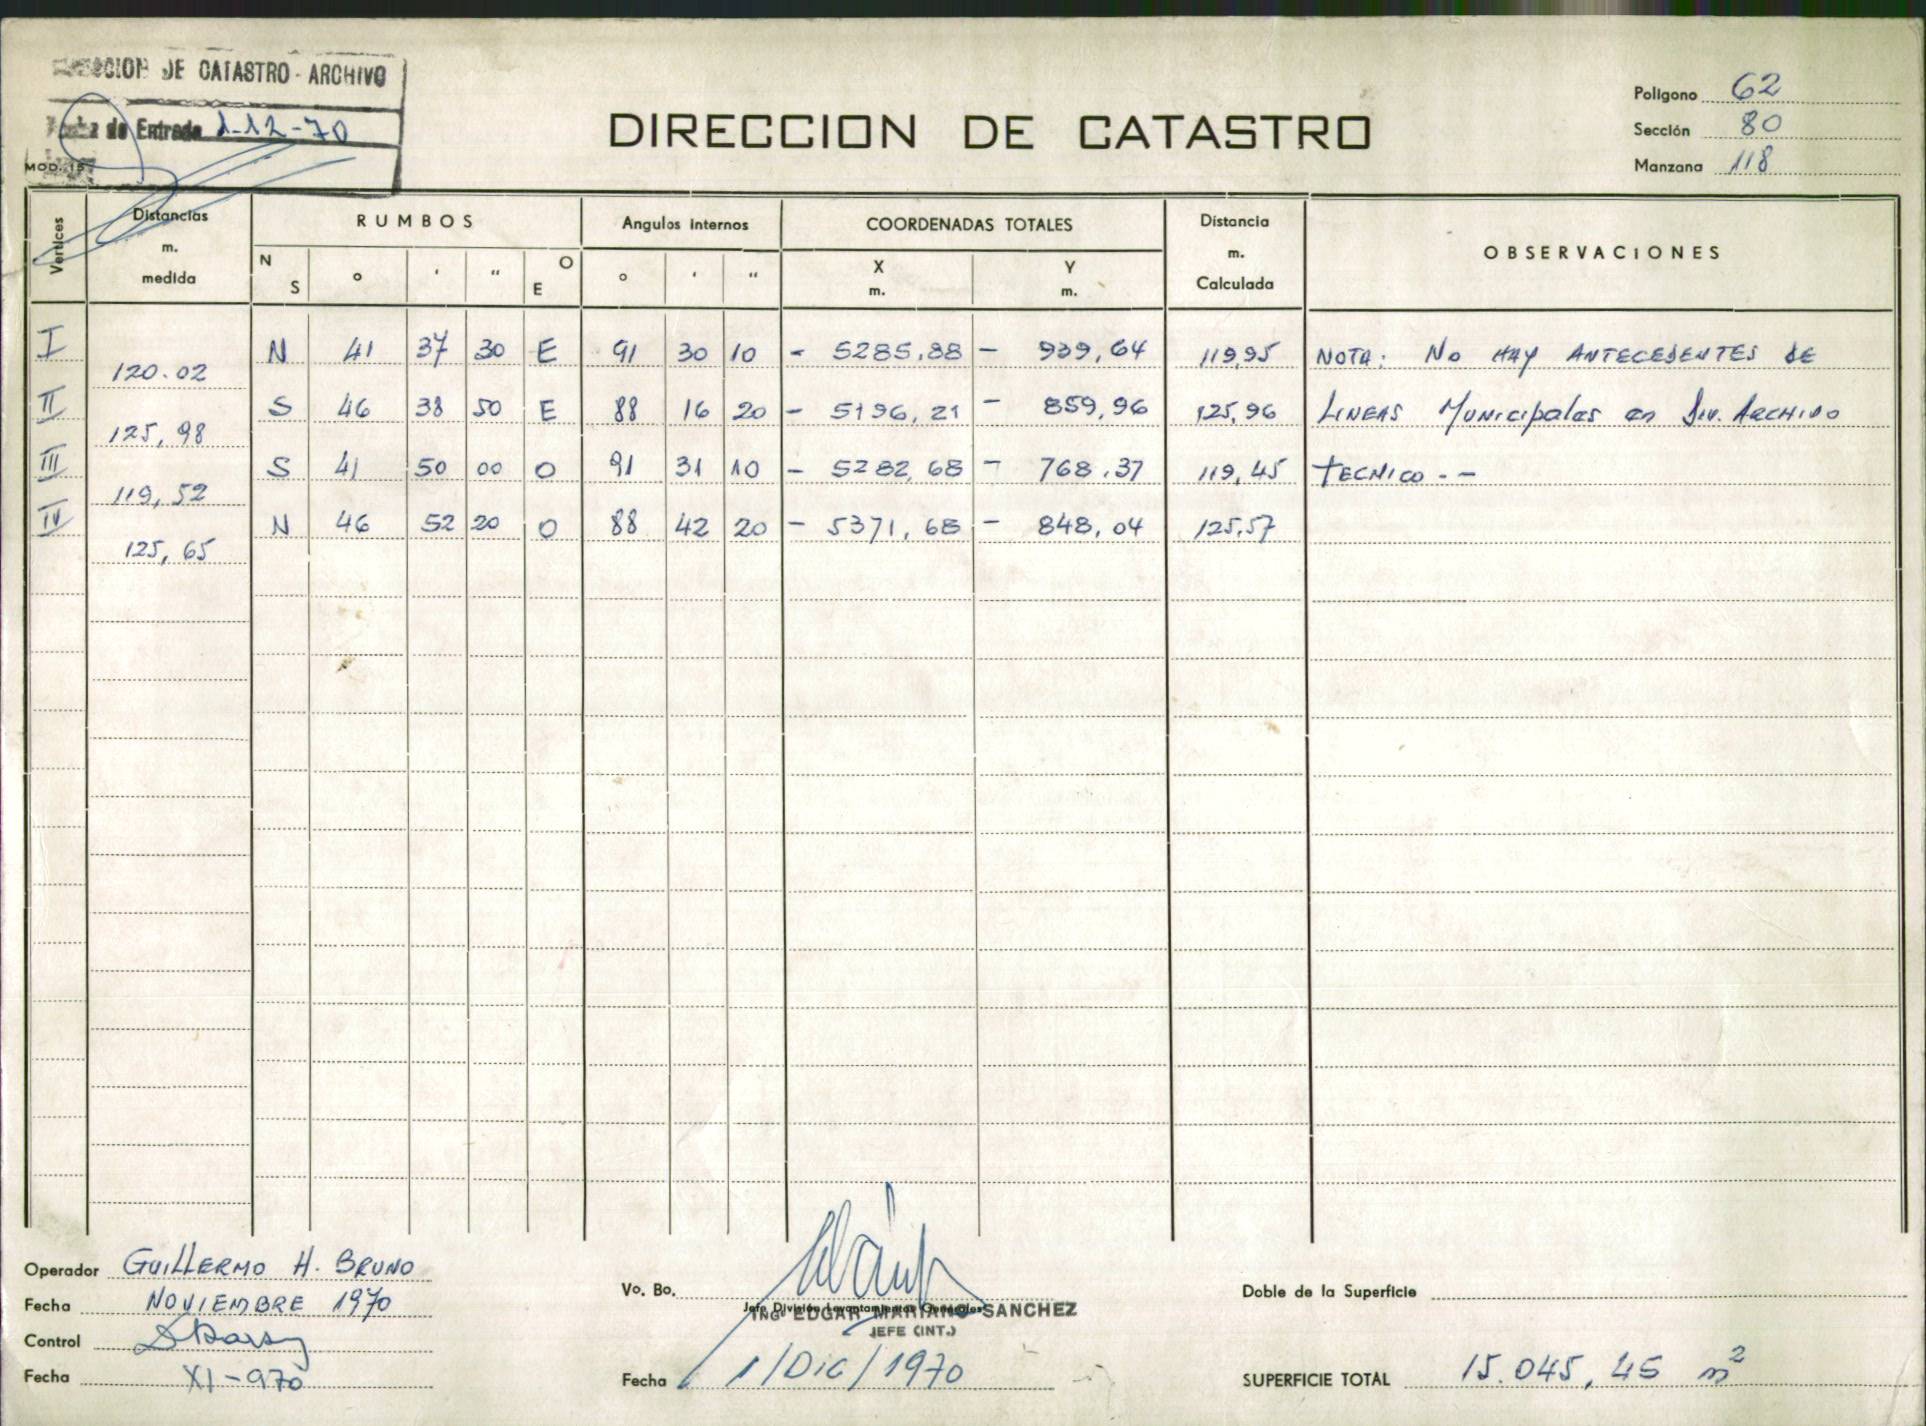 DIRECCION DE CATASTRO - ARCHIVO
Fecha de Entrada 1-12-70
MOD. 15
DIRECCION DE CATASTRO
Polígono 62
Sección 80
Manzana 118
Vertices
Distancias m. medida
RUMBOS
Angulos internos
COORDENADAS TOTALES
Distancia m. Calculada
OBSERVACIONES
N S ° ' " O E
° ' "
X m. Y m.
I N 41 37 30 E 91 30 10 - 5285,88 - 939,64 119,95 NOTA: No HAY ANTECEDENTES DE
120.02
II S 46 38 50 E 88 16 20 - 5196,21 - 859,96 125,96 LINEAS Municipales en Div. ARCHIVO
125,98
III S 41 50 00 O 91 31 10 - 5282,68 - 768.37 119,45 TECNICO.--
119,52
IV N 46 52 20 O 88 42 20 - 5371,68 - 848,04 125,57
125,65
Operador GUILLERMO H. BRUNO
Fecha NOVIEMBRE 1970
Control
Fecha XI-970
Vo. Bo.
Jefe División Levantamientos Generales
ING° EDGAR MARIANO SANCHEZ
JEFE (INT.)
Fecha 1/Dic/1970
Doble de la Superficie
SUPERFICIE TOTAL 15.045,45 m²